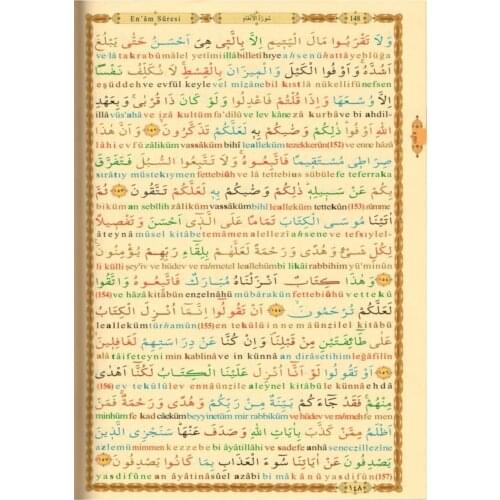 En'âm Sûresi
سورة الانعام
148
وَلَا تَقْرَبُوا مَالَ الْيَتِيمِ اِلَّا بِالَّتِي هِيَ اَحْسَنُ حَتّٰى يَبْلُغَ
ve lâ takrabû mâlel yetîmi illâ billetî hiye ahsenü hattâ yeblüğa
اَشُدَّهُ وَاَوْفُوا الْكَيْلَ وَالْمِيزَانَ بِالْقِسْطِ لَا نُكَلِّفُ نَفْسًا
eşüddeh ve evfül keyle vel mîzâne bil kıst lâ nükellifü nefsen
اِلَّا وُسْعَهَا وَاِذَا قُلْتُمْ فَاعْدِلُوا وَلَوْ كَانَ ذَا قُرْبٰى وَبِعَهْدِ
illâ vüs'ahâ ve izâ kultüm fa'dilû ve lev kâne zâ kurbâ ve bi ahdil-
اللّٰهِ اَوْفُوا ذٰلِكُمْ وَصّٰيكُمْ بِهِ لَعَلَّكُمْ تَذَكَّرُونَ ﴿١٥٢﴾ وَاَنَّ هٰذَا
lâhi evfû zâliküm vassâküm bihî lealleküm tezekkerûn (152) ve enne hâzâ
صِرَاطِي مُسْتَقِيمًا فَاتَّبِعُوهُ وَلَا تَتَّبِعُوا السُّبُلَ فَتَفَرَّقَ
sırâtıy müstekıymen fettebiûh ve lâ tettebius sübüle fe teferraka
بِكُمْ عَنْ سَبِيلِهِ ذٰلِكُمْ وَصّٰيكُمْ بِهِ لَعَلَّكُمْ تَتَّقُونَ ﴿١٥٣﴾ ثُمَّ
biküm an sebîlih zâliküm vassâküm bihî lealleküm tettekûn (153) sümme
اٰتَيْنَا مُوسَى الْكِتَابَ تَمَامًا عَلَى الَّذِي اَحْسَنَ وَتَفْصِيلًا
âteynâ mûsel kitâbe temâmen alellezî ahsene ve tefsıylel
لِكُلِّ شَيْءٍ وَهُدًى وَرَحْمَةً لَعَلَّهُمْ بِلِقَاءِ رَبِّهِمْ يُؤْمِنُونَ ﴿١٥٤﴾
li külli şey'iv ve hüdev ve rahmetel leallehüm bi likâi rabbihim yü'minûn
وَهٰذَا كِتَابٌ اَنْزَلْنَاهُ مُبَارَكٌ فَاتَّبِعُوهُ وَاتَّقُوا
(154) ve hâzâ kitâbün enzelnâhü mübârakün fettebiûhü vettekû
لَعَلَّكُمْ تُرْحَمُونَ ﴿١٥٥﴾ اَنْ تَقُولُوا اِنَّمَا اُنْزِلَ الْكِتَابُ
lealleküm türhamûn (155) en tekûlû innemâ ünzilel kitâbü
عَلٰى طَائِفَتَيْنِ مِنْ قَبْلِنَا وَاِنْ كُنَّا عَنْ دِرَاسَتِهِمْ لَغَافِلِينَ
alâ tâifeteyni min kablinâ ve in künnâ an dirâsetihim leğâfilîn
﴿١٥٦﴾ اَوْ تَقُولُوا لَوْ اَنَّا اُنْزِلَ عَلَيْنَا الْكِتَابُ لَكُنَّا اَهْدٰى
(156) ev tekûlû lev ennâ ünzile aleynel kitâbü le künnâ ehdâ
مِنْهُمْ فَقَدْ جَاءَكُمْ بَيِّنَةٌ مِنْ رَبِّكُمْ وَهُدًى وَرَحْمَةٌ فَمَنْ
minhüm fe kad câeküm beyyinetüm mir rabbiküm ve hüdev ve rahmeh fe men
اَظْلَمُ مِمَّنْ كَذَّبَ بِاٰيَاتِ اللّٰهِ وَصَدَفَ عَنْهَا سَنَجْزِي الَّذِينَ
azlemü mimmen kezzebe bi âyâtillâhi ve sadefe anhâ seneczillezîne
يَصْدِفُونَ عَنْ اٰيَاتِنَا سُوءَ الْعَذَابِ بِمَا كَانُوا يَصْدِفُونَ ﴿١٥٧﴾
yasdifûne an âyâtinâ sûel azâbi bi mâ kânû yasdifûn (157)
١٤٨